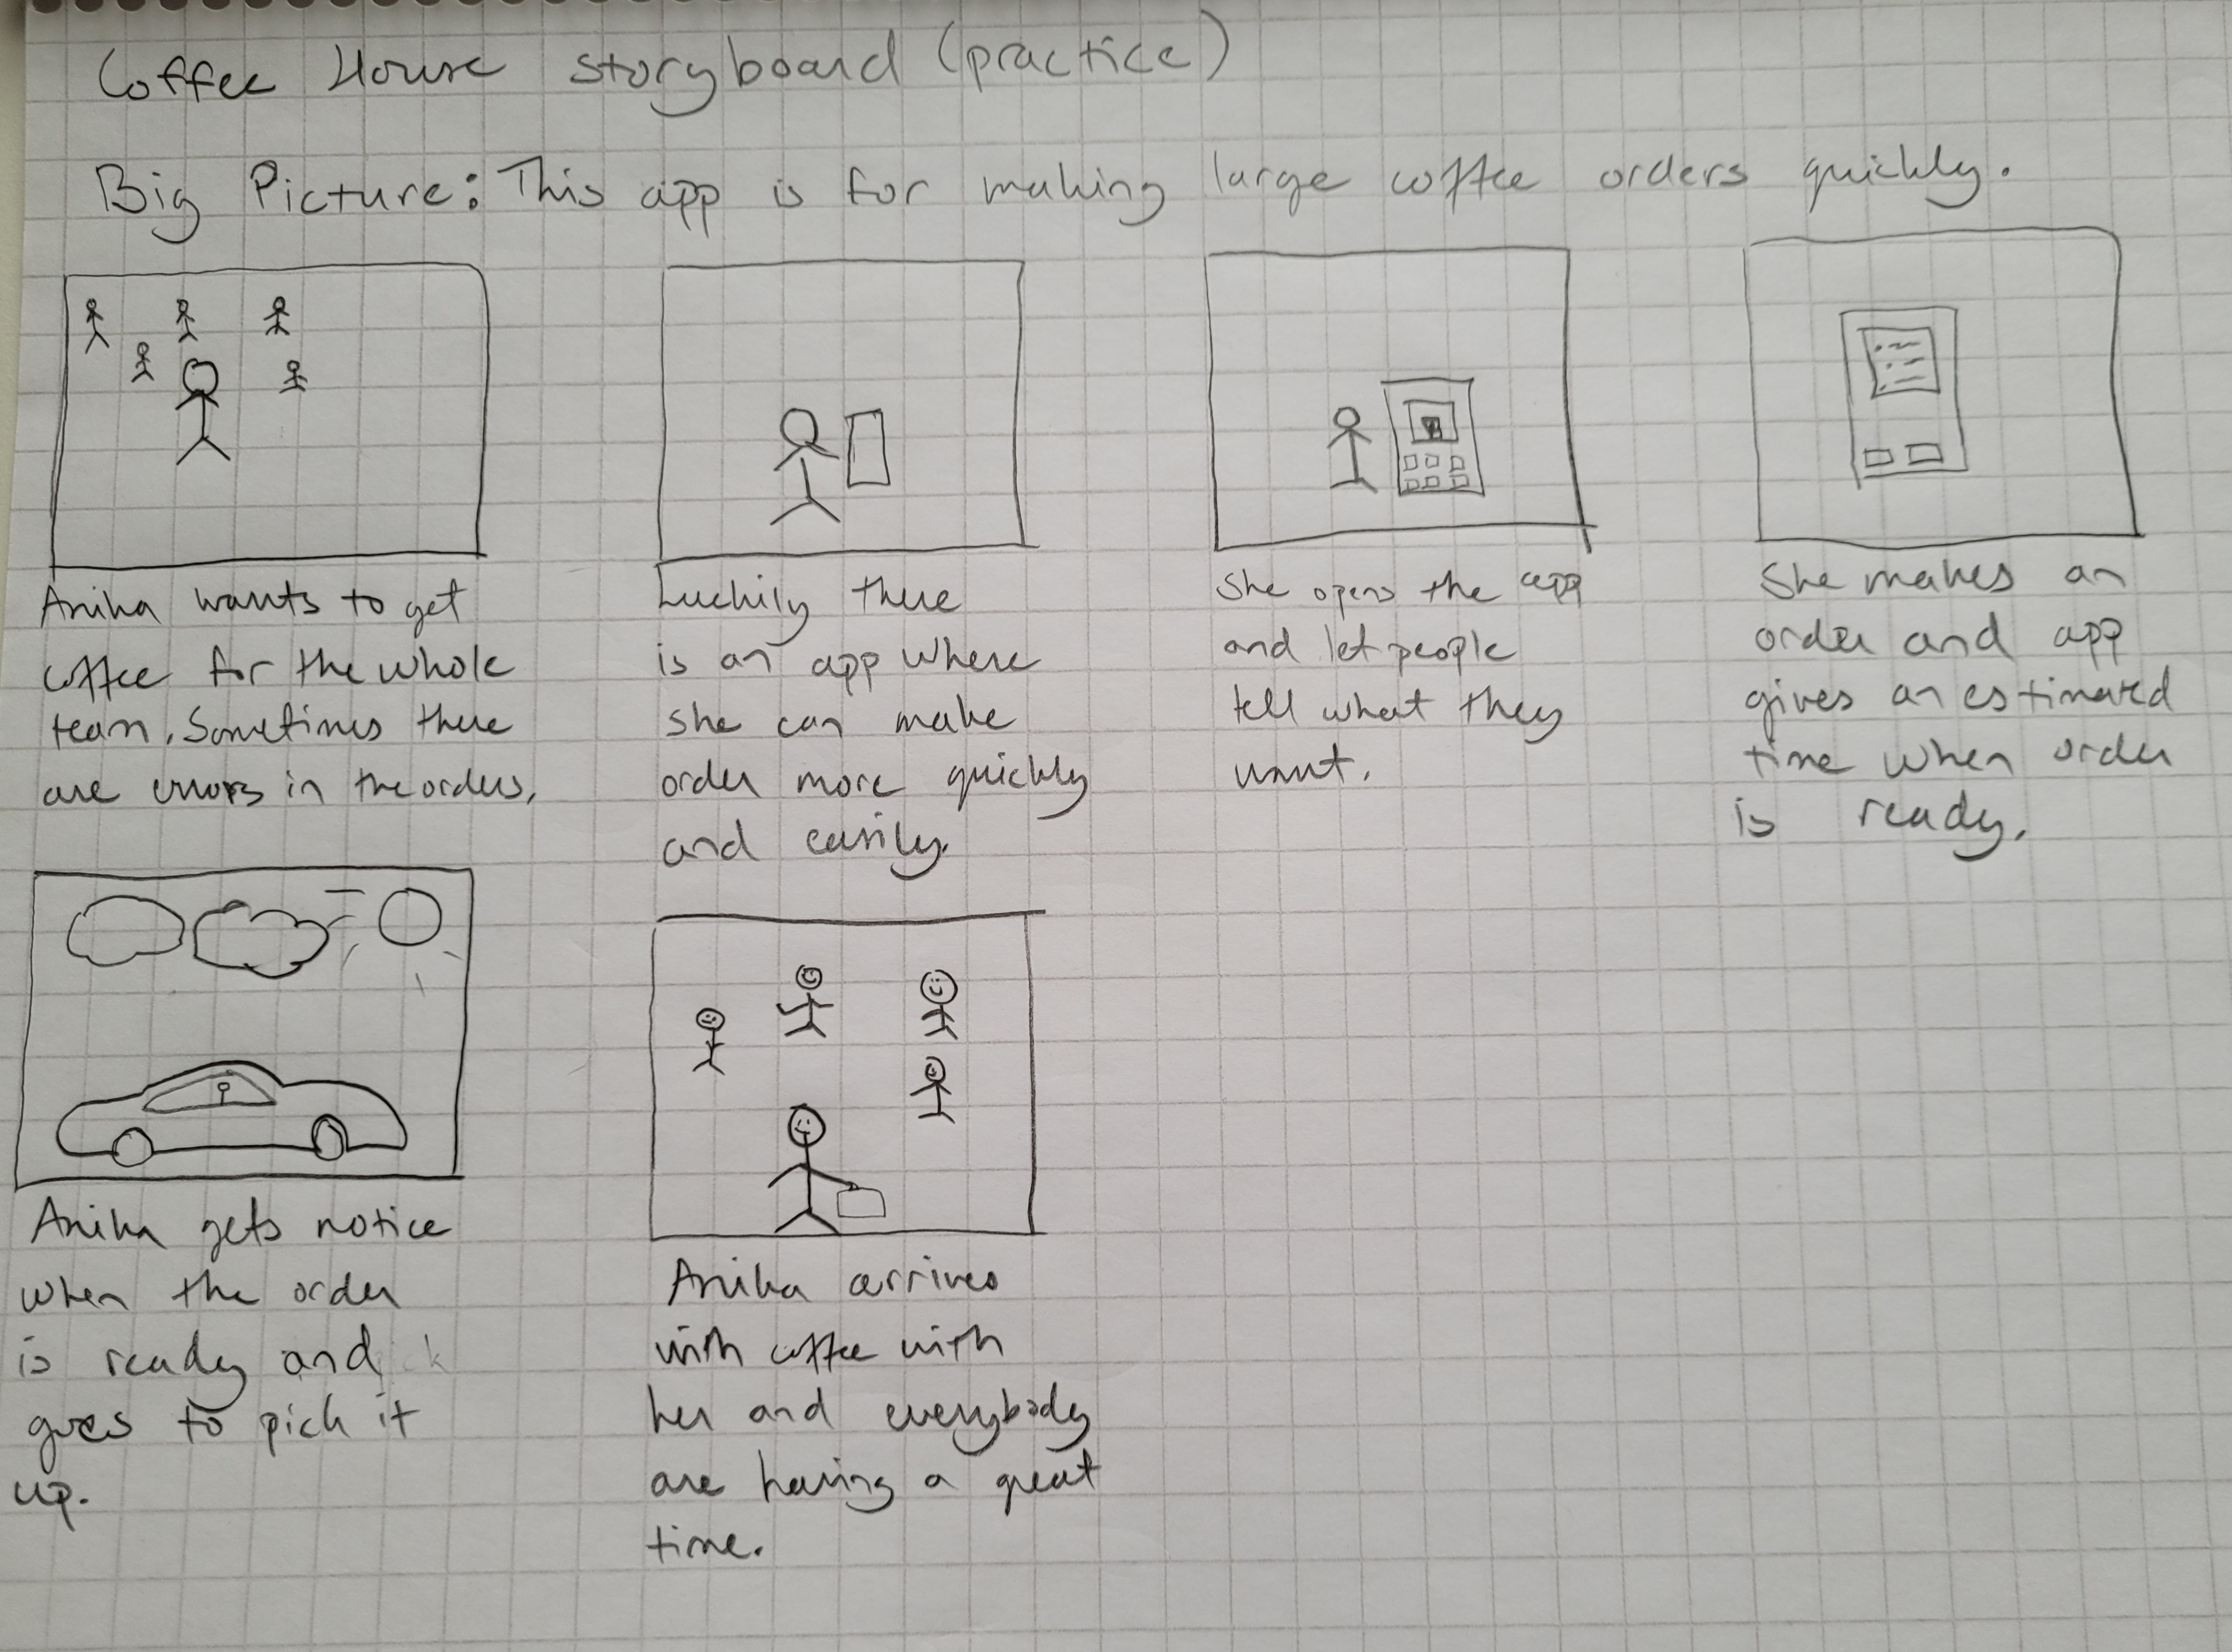 Coffee House storyboard (practice)
Big Picture: This app is for making large coffee orders quickly.
Anika wants to get
coffee for the whole
team. Sometimes there
are errors in the orders.
Luckily there
is an app where
she can make
order more quickly
and easily.
She opens the app
and let people
tell what they
want.
She makes an
order and app
gives an estimated
time when order
is ready.
Anika gets notice
when the order
is ready and
goes to pick it
up.
Anika arrives
with coffee with
her and everybody
are having a great
time.